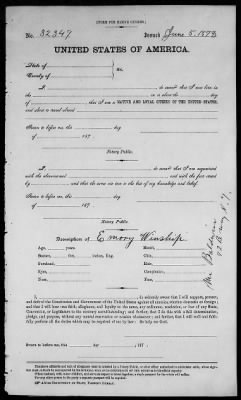 [FORM FOR NATIVE CITIZEN.]
No. 32347 Issued June 5, 1873
UNITED STATES OF AMERICA.
State of
County of
ss.
I, do swear that I was born in
in or about the day
of , that I am a NATIVE AND LOYAL CITIZEN OF THE UNITED STATES,
and about to travel abroad
Sworn to before me, this day
of 187
Notary Public.
I, do swear that I am acquainted
with the above-named and with the facts stated
by and that the same are true to the best of my knowledge and belief.
Sworn to before me, this day
of 187
Notary Public.
Description of Emory Winship
Age, years. Mouth,
Stature, feet, inches, Eng. Chin,
Forehead, Hair,
Eyes, Complexion,
Nose, Face,
Mr Baldwin
I, do solemnly swear that I will support, protect,
and defend the Constitution and Government of the United States against all enemies, whether domestic or foreign; and
that I will bear true faith, allegiance, and loyalty to the same, any ordinance, resolution, or law of any State,
Convention, or Legislature to the contrary notwithstanding; and further, that I do this with a full determination,
pledge, and purpose, without any mental reservation or evasion whatsoever; and further, that I will well and faith-
fully perform all the duties which may be required of me by law: So help me God.
Sworn to before me, this day 187